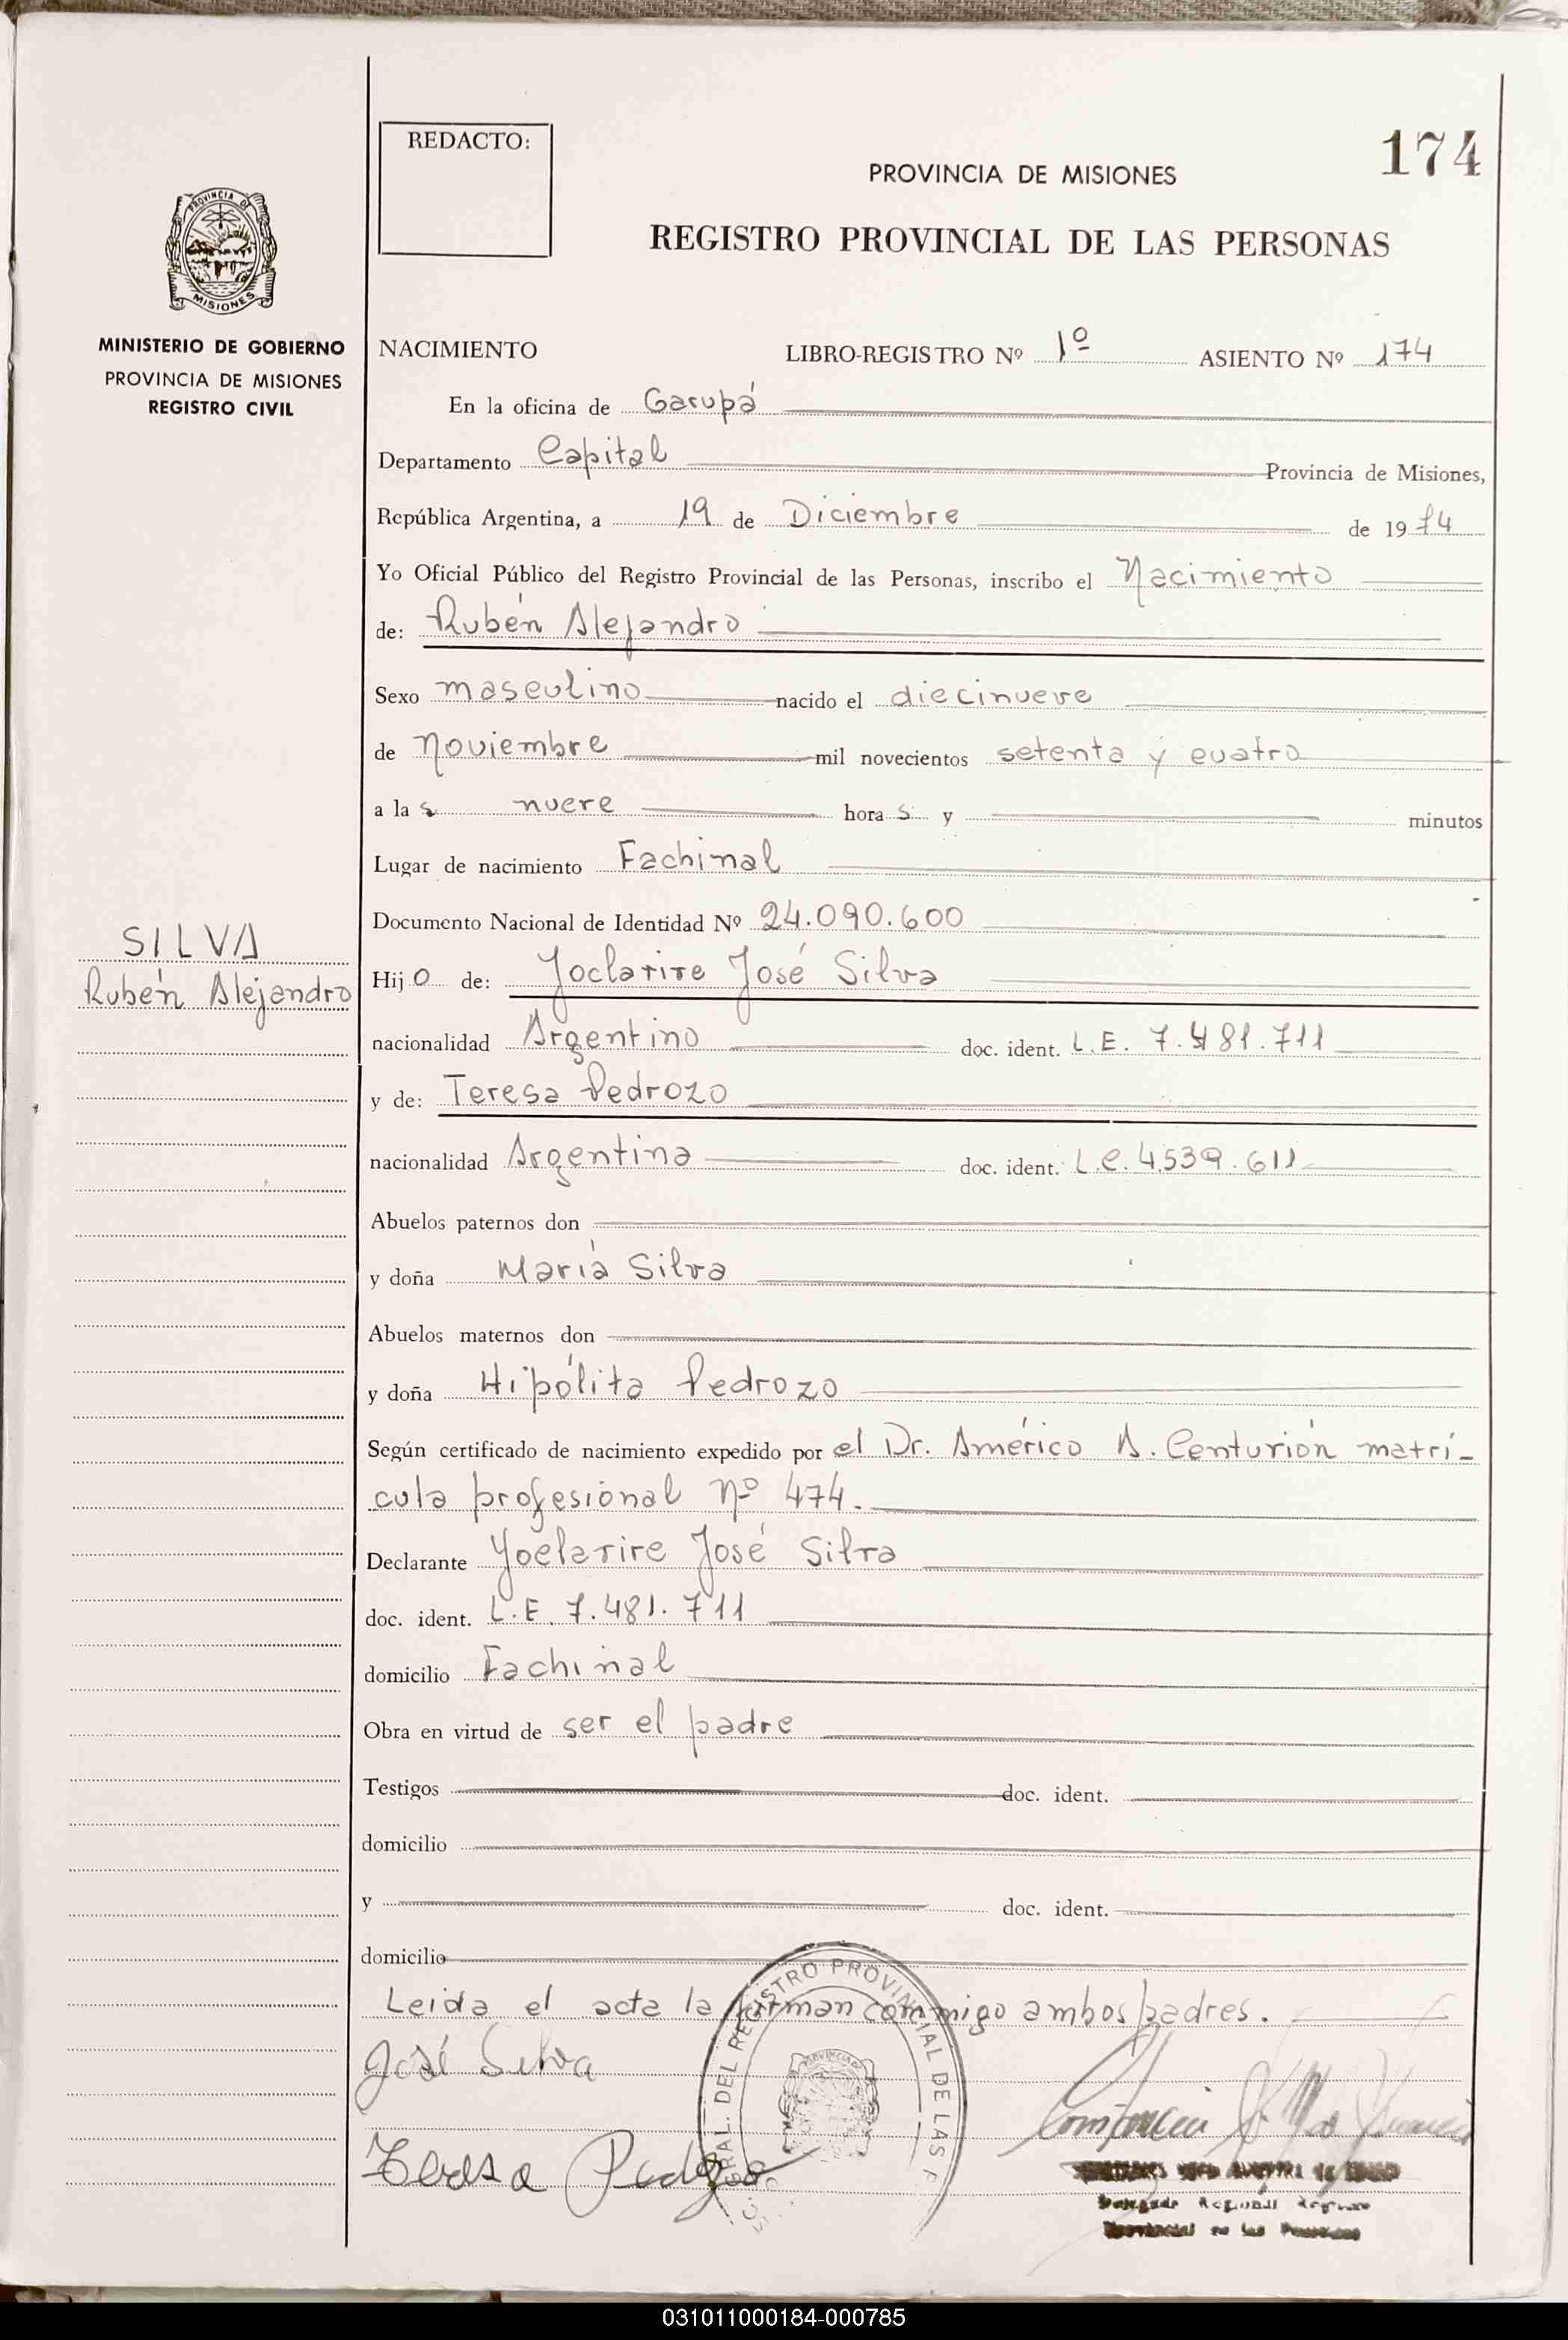 REDACTO:
174
PROVINCIA DE MISIONES
REGISTRO PROVINCIAL DE LAS PERSONAS
PROVINCIA DE
MISIONES
MINISTERIO DE GOBIERNO
PROVINCIA DE MISIONES
REGISTRO CIVIL
NACIMIENTO LIBRO-REGISTRO Nº 1º ASIENTO Nº 174
En la oficina de Garupá
Departamento Capital Provincia de Misiones,
República Argentina, a 19 de Diciembre de 1974
Yo Oficial Público del Registro Provincial de las Personas, inscribo el Nacimiento
de: Rubén Alejandro
Sexo masculino nacido el diecinueve
de Noviembre mil novecientos setenta y cuatro
a las nueve horas y minutos
Lugar de nacimiento Fachinal
Documento Nacional de Identidad Nº 24.090.600
SILVA
Rubén Alejandro
Hijo de: Yoclarire José Silva
nacionalidad Argentino doc. ident. L.E. 7.481.711
y de: Teresa Pedrozo
nacionalidad Argentina doc. ident. L.C. 4.539.611
Abuelos paternos don
y doña María Silva
Abuelos maternos don
y doña Hipólita Pedrozo
Según certificado de nacimiento expedido por el Dr. Américo A. Centurión matrí-
cula profesional nº 474.
Declarante Yoclarire José Silva
doc. ident. L.E. 7.481.711
domicilio Fachinal
Obra en virtud de ser el padre
Testigos doc. ident.
domicilio
y doc. ident.
domicilio
Leida el acta la firman conmigo ambos padres.
José Silva
Teresa Pedrozo
GRAL. DEL REGISTRO PROVINCIAL DE LAS P
031011000184-000785